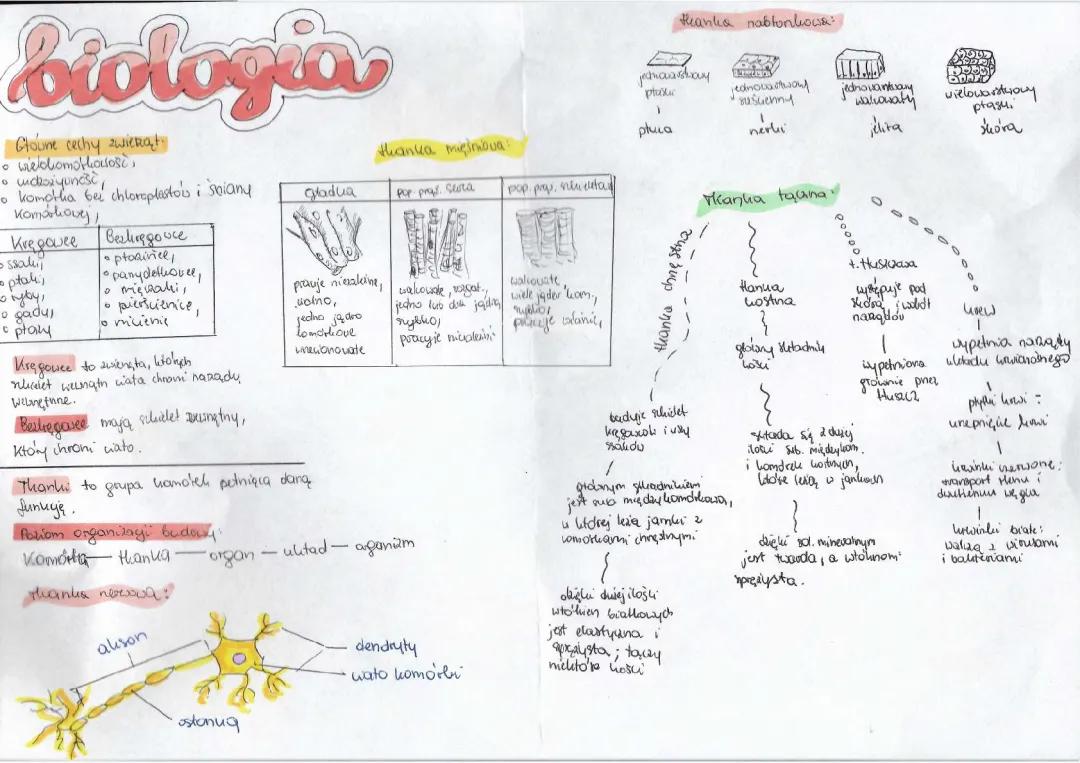 biologia
Główne cechy zwierząt:
wielokomórkowość,
cudzożywność,
komórka bez chloroplastów i ściany
komórkowej,
Kręgowce
Bezkręgowce
ssaki,
ptaki,
ryby,
gady,
płazy
płazińce,
parzydełkowce,
mięczaki,
pierścienice,
nicienie
Kręgowce to zwierzęta, których
szkielet wewnątrz ciała chroni narządy
wewnętrzne.
Bezkręgowce mają szkielet zewnętrzny,
który chroni ciało.
Tkanki to grupa komórek pełniąca daną
funkcję.
Poziom organizacji budowy:
Komórka — tkanka — organ — układ — organizm
tkanka nerwowa:
akson
dendryty
ciało komórki
osłonka
tkanka mięśniowa:
gładka
pop. prąż. serca
pop. prąż. szkieletowa
pracuje niezależnie,
wolno,
jedno jądro
komórkowe
wrzecionowate
walcowate, rozgał.,
jedno lub dwa jądra,
szybko,
pracuje niezależnie
walcowate,
wiele jąder kom.,
szybko,
pracuje zależnie,
tkanka nabłonkowa:
jednowarstwowy
płaski
płuca
jednowarstwowy
sześcienny
nerki
jednowarstwowy
walcowaty
jelita
wielowarstwowy
płaski
skóra
tkanka łączna:
tkanka chrzęstna
buduje szkielet
kręgowców i uszy
ssaków
głównym składnikiem
jest sub. międzykomórkowa,
w której leżą jamki z
komórkami chrzęstnymi
dzięki dużej ilości
włókien białkowych
jest elastyczna i
sprężysta; łączy
niektóre kości
tkanka
kostna
główny składnik
kości
składa się z dużej
ilości sub. międzykom.
i komórek kostnych,
które leżą w jamkach
dzięki sol. mineralnym
jest twarda, a włóknom
sprężysta.
t. tłuszczowa
występuje pod
skórą i wokół
narządów
wypełniona
głównie przez
tłuszcz
krew
wypełnia narządy
układu krwionośnego
płytki krwi -
krzepnięcie krwi
krwinki czerwone:
transport tlenu i
dwutlenku węgla
krwinki białe:
walczą z wirusami
i bakteriami